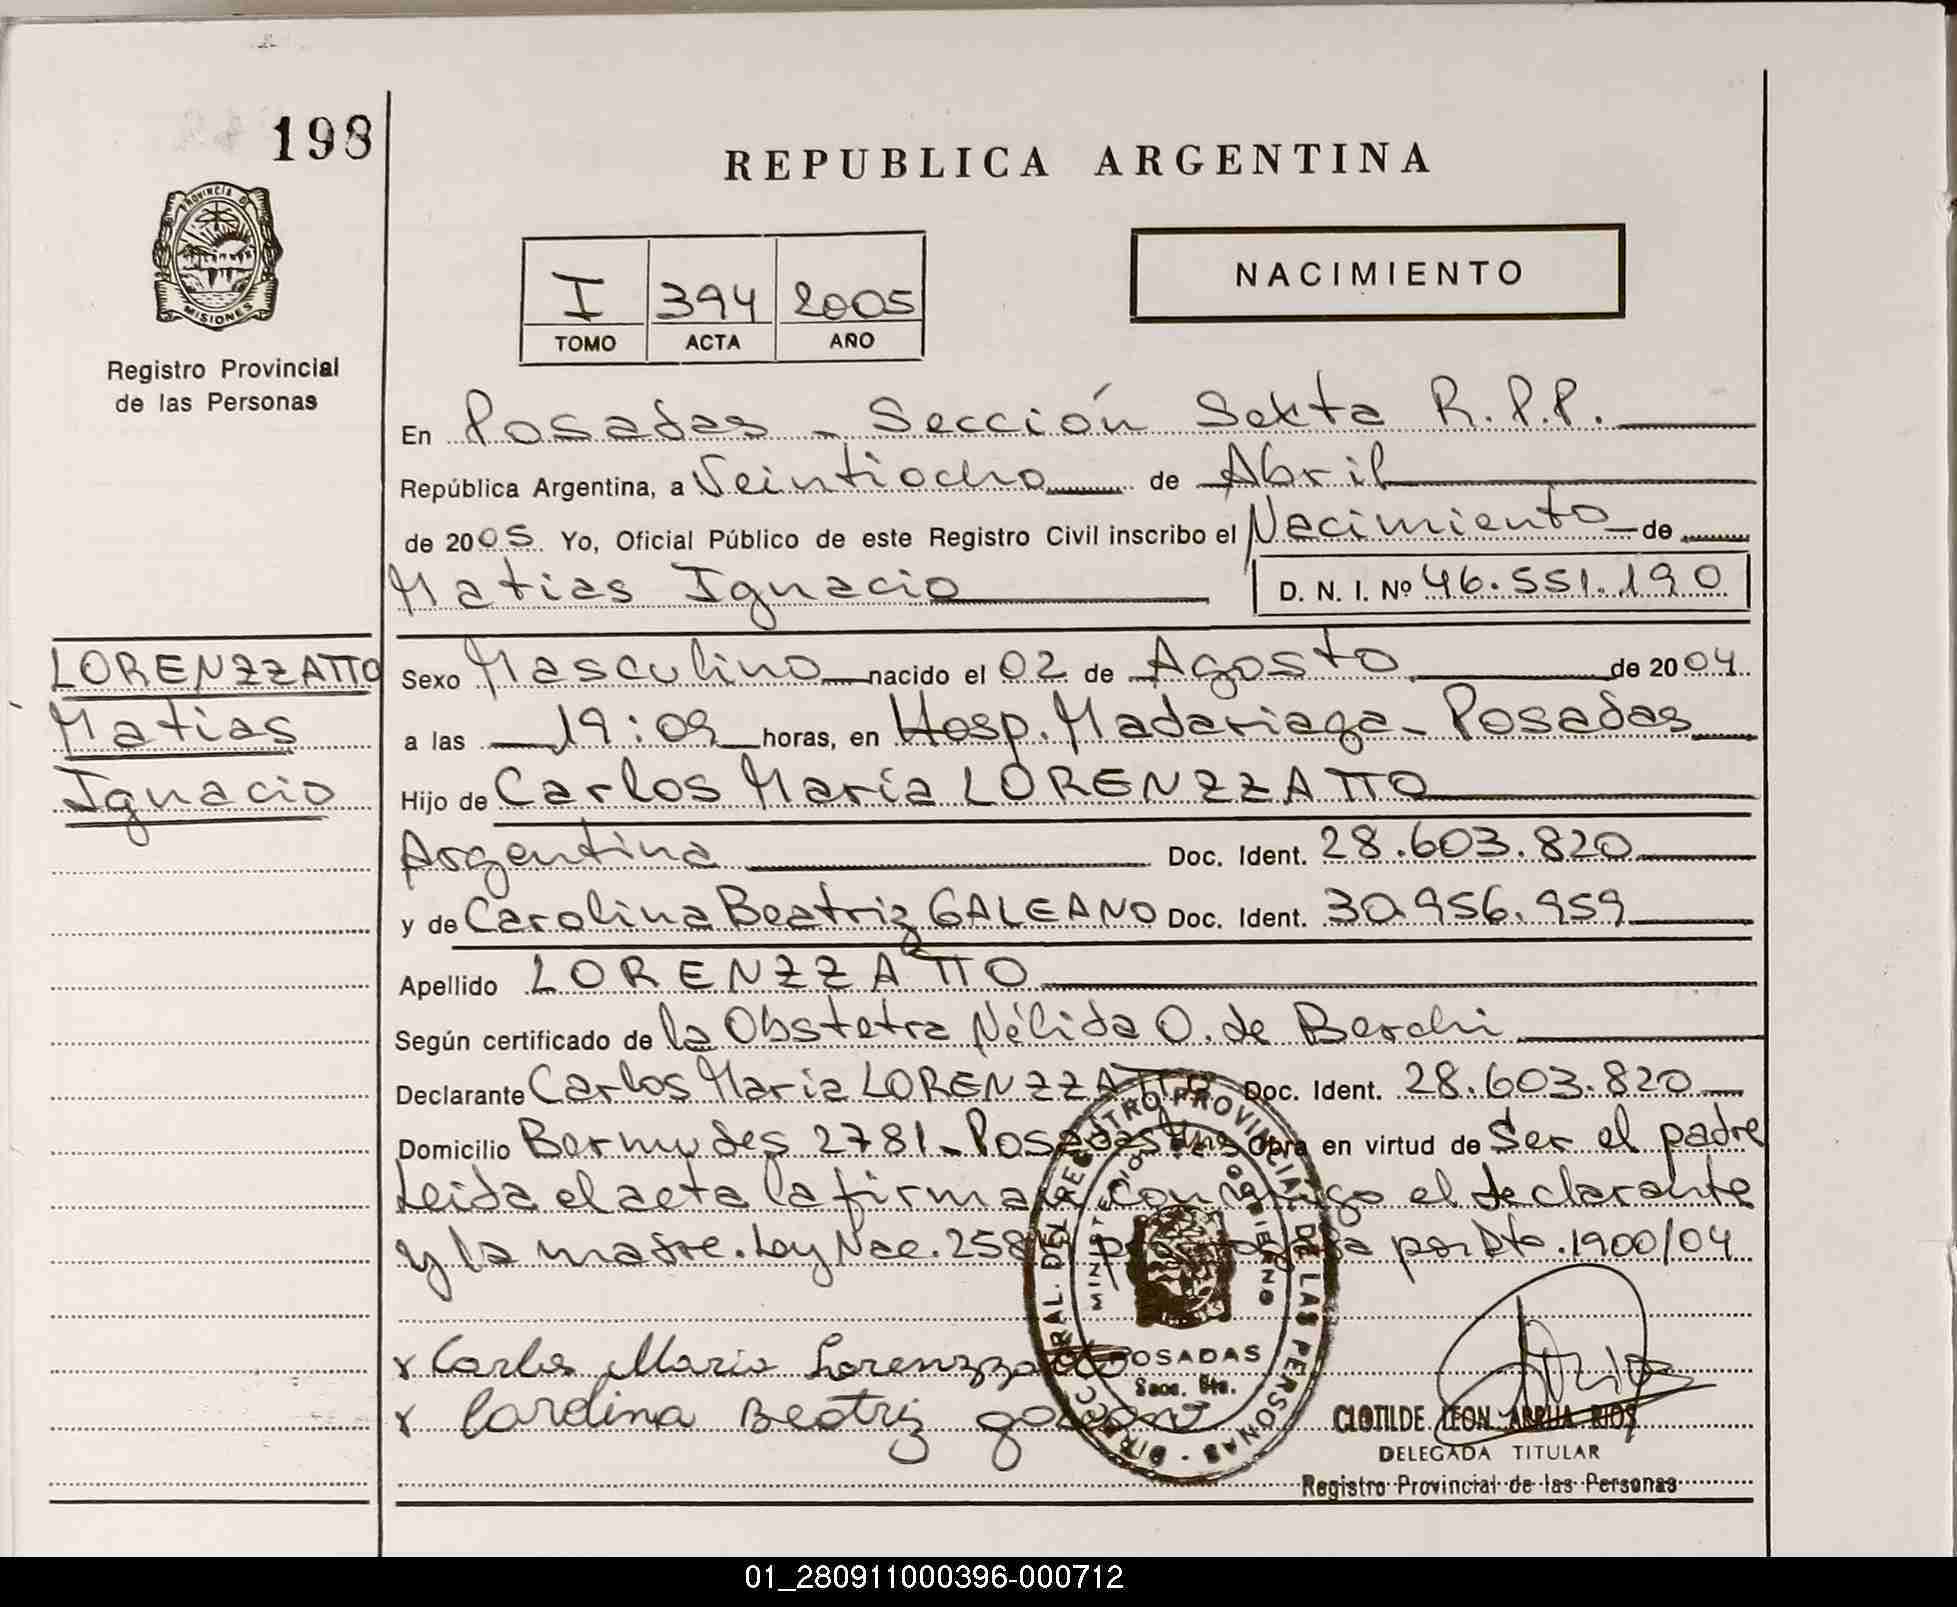 198
PROVINCIA DE
MISIONES
Registro Provincial
de las Personas
REPUBLICA ARGENTINA
I 394 2005
TOMO ACTA AÑO
NACIMIENTO
En Posadas - Sección Sexta R.P.P.
República Argentina, a Veintiocho de Abril
de 2005 Yo, Oficial Público de este Registro Civil inscribo el Nacimiento de
Matias Ignacio D. N. I. Nº 46.551.190
LORENZZATTO
Matias
Ignacio
Sexo Masculino nacido el 02 de Agosto de 2004
a las 19:09 horas, en Hosp. Madariaga - Posadas
Hijo de Carlos María LORENZZATTO
Argentina Doc. Ident. 28.603.820
y de Carolina Beatriz GALEANO Doc. Ident. 30.956.959
Apellido LORENZZATTO
Según certificado de la Obstetra Nélida O. de Berchi
Declarante Carlos María LORENZZATTO Doc. Ident. 28.603.820
Domicilio Bermudes 2781 - Posadas Mnes Obra en virtud de Ser el padre
Leida el acta la firman conmigo el declarante
y la madre. Ley Nac. por Dto. 1900/04
x Carlos Maria Lorenzzatto
x Carolina Beatriz
DIRECC. GRAL. DEL REGISTRO PROVINCIAL DE LAS PERSONAS
MINISTERIO DE GOBIERNO
POSADAS
Secc. 6ta.
CLOTILDE LEON ARRUA RIOS
DELEGADA TITULAR
Registro Provincial de las Personas
01_280911000396-000712